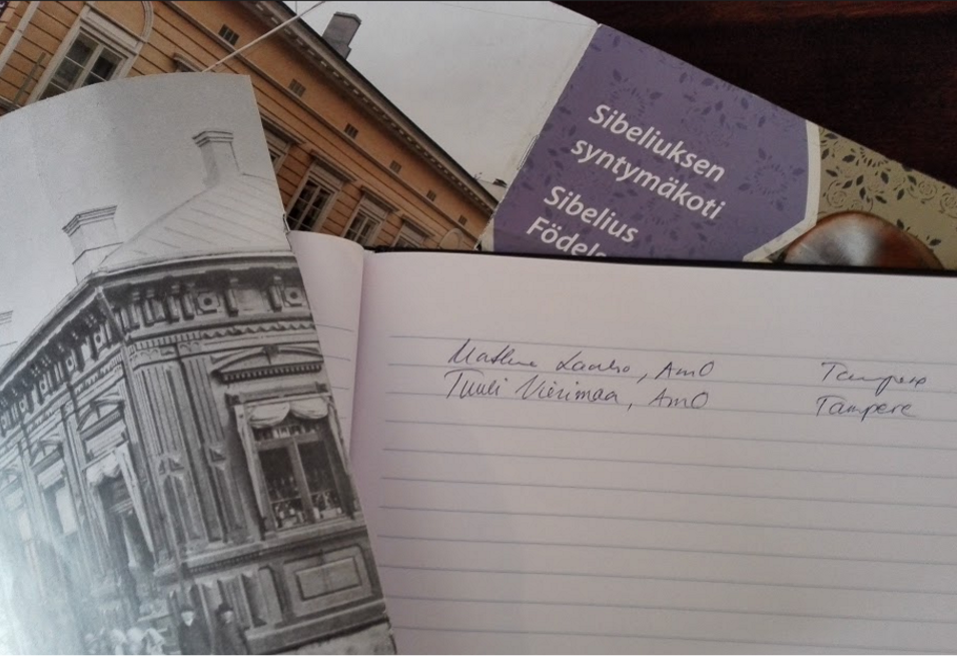 Sibeliuksen
syntymäkoti
Sibelius
Födels
, AmO Tampere
Tuuli Vierimaa, AmO Tampere